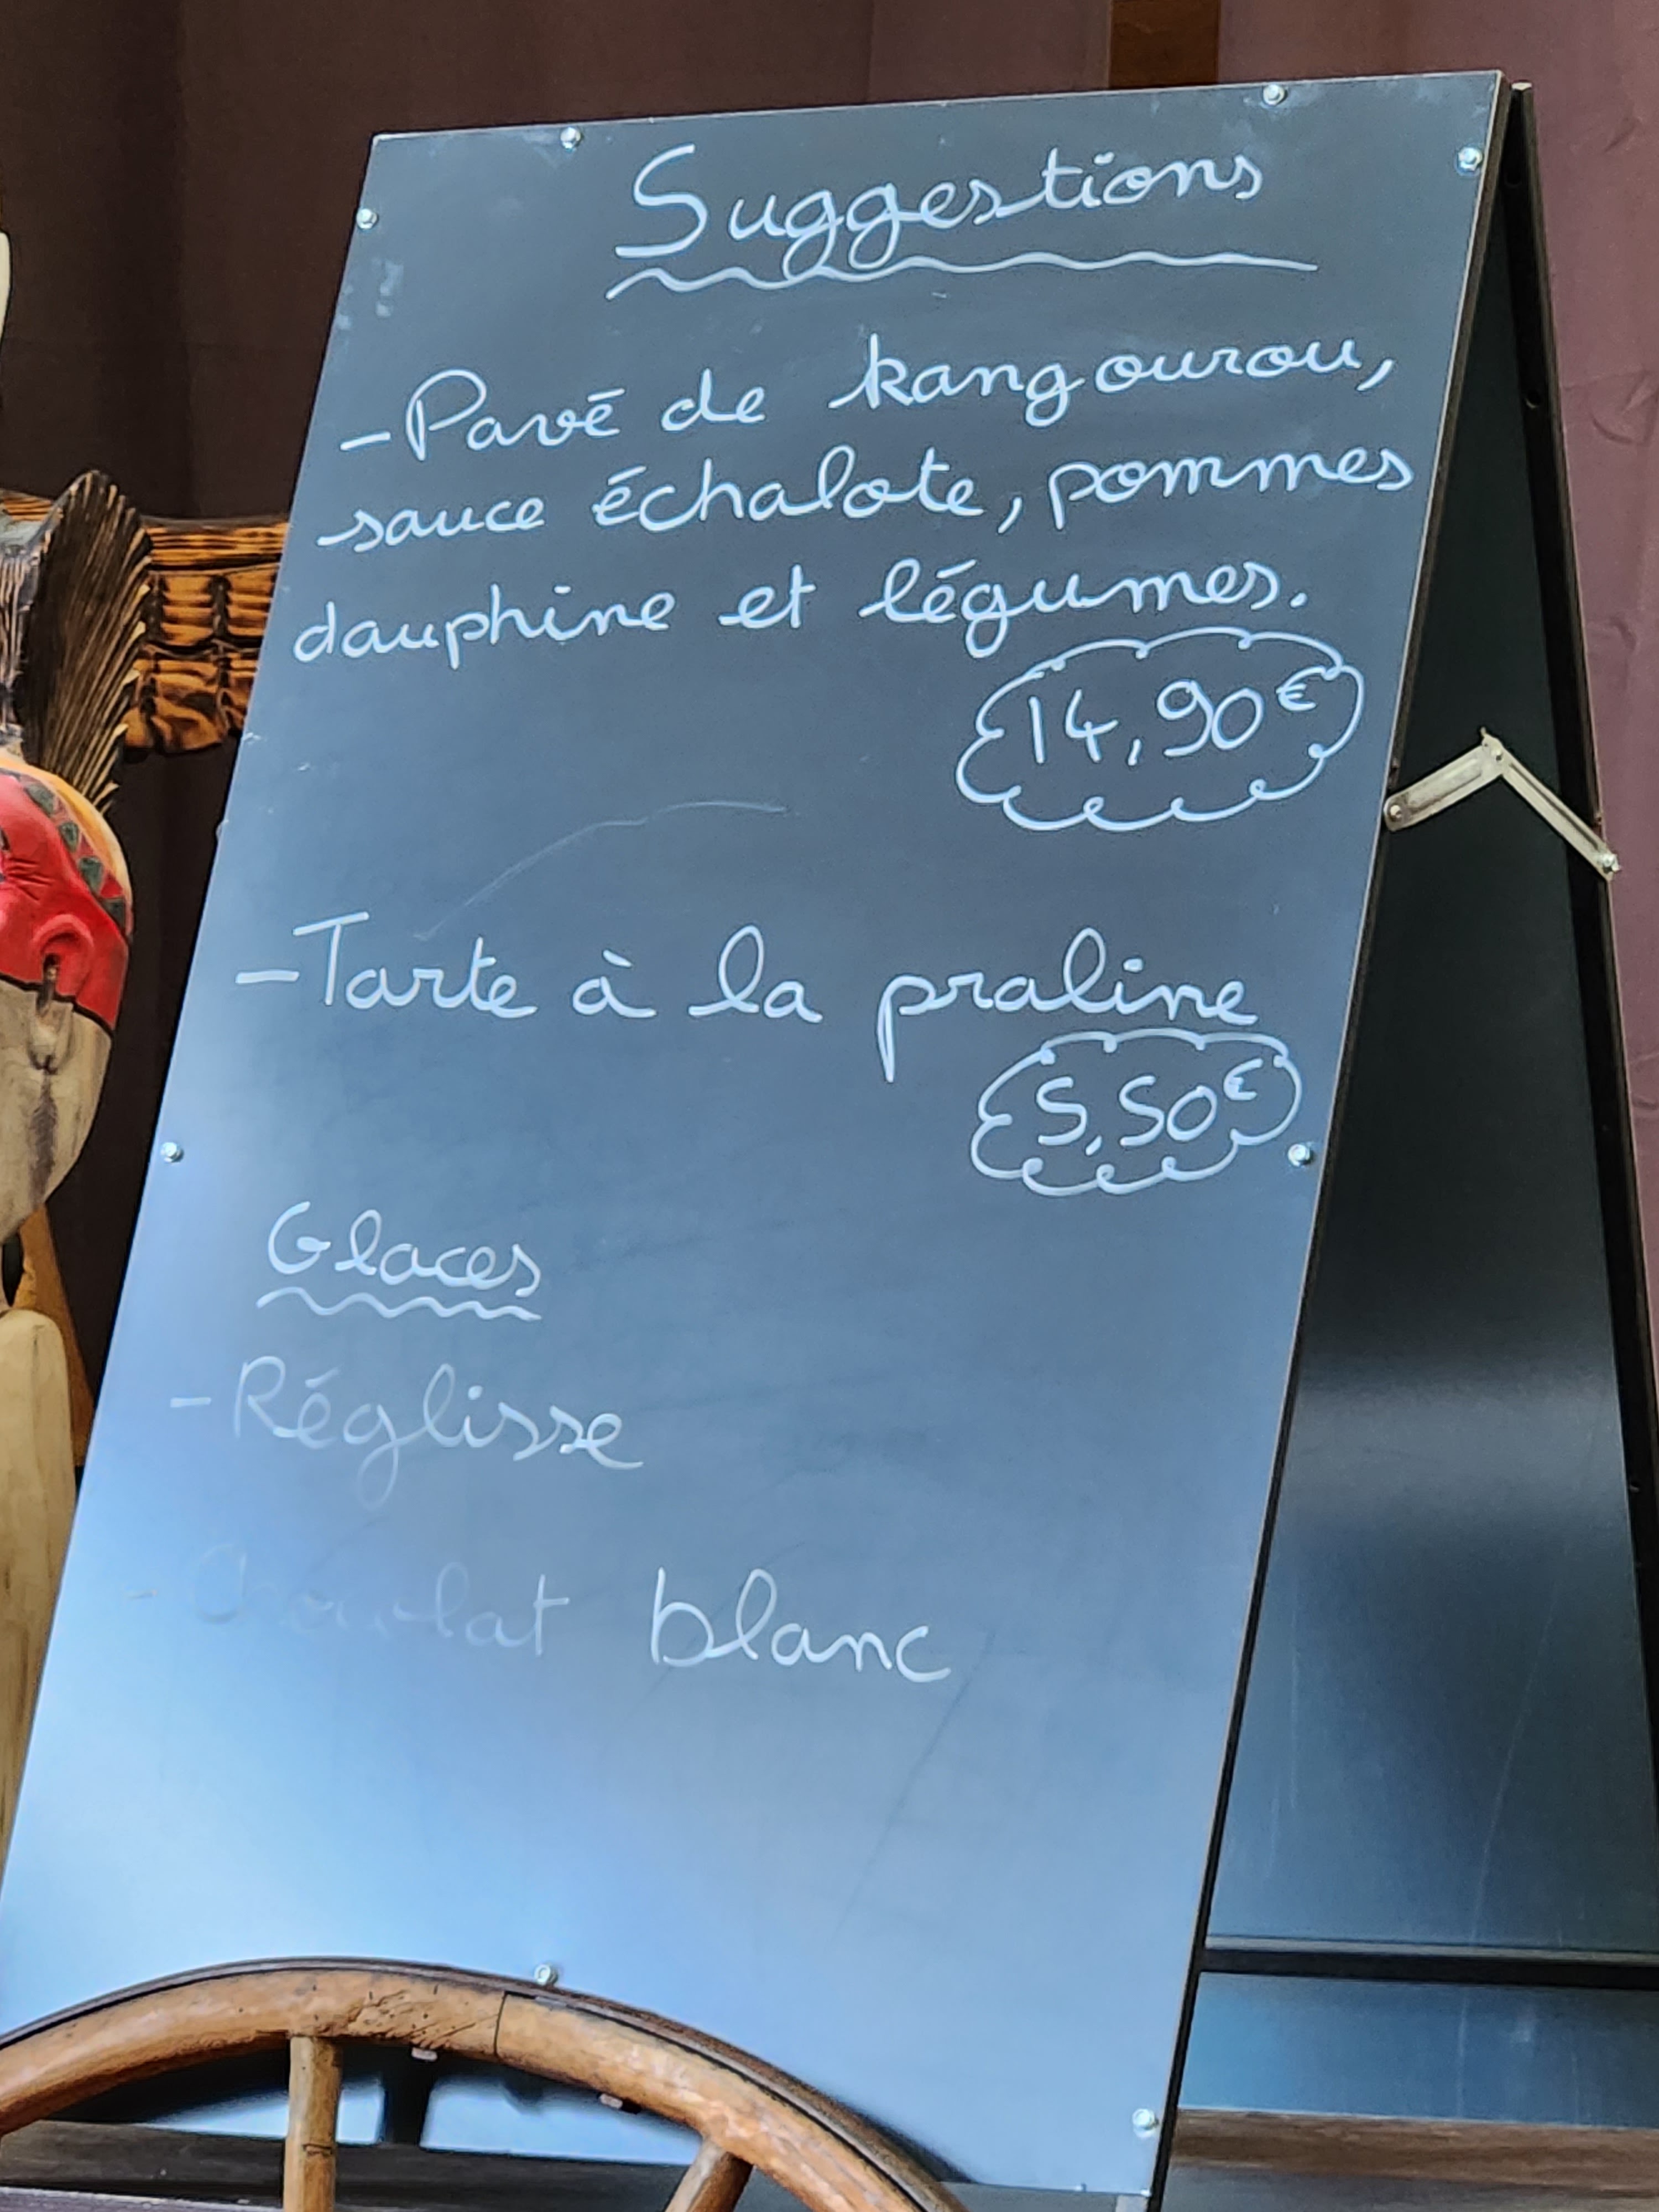 Suggestions
- Pavé de kangourou,
sauce échalote, pommes
dauphine et légumes.
14,90€
- Tarte à la praline
5,50€
Glaces
- Réglisse
- Chocolat blanc